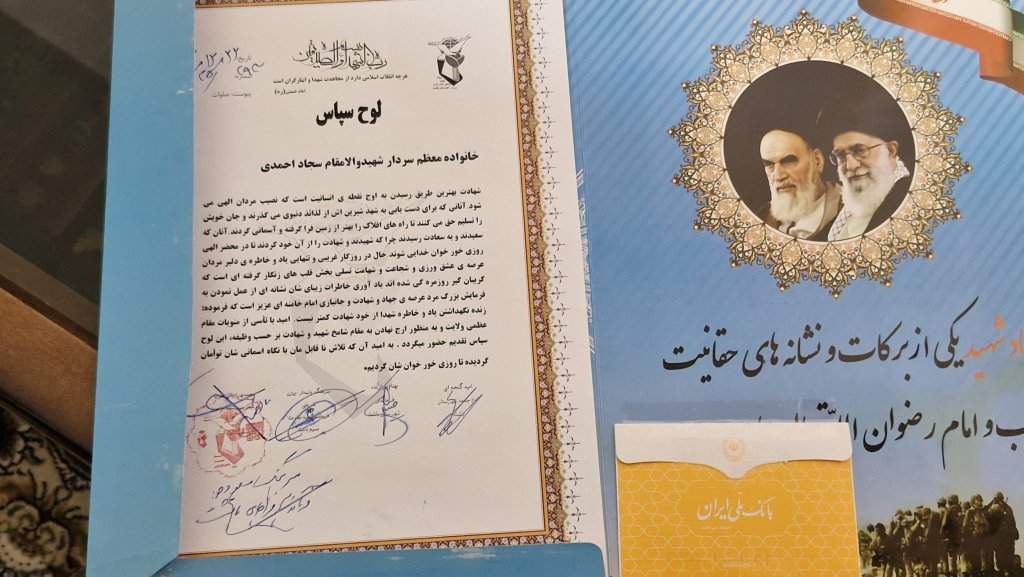 رب الشهداء و الصدیقین
هرچه انقلاب اسلامی دارد از مجاهدت شهدا و ایثارگران است
امام خمینی(ره)
تاریخ
پیوست: صلوات
لوح سپاس
خانواده معظم سردار شهیدوالامقام سجاد احمدی
شهادت بهترین طریق رسیدن به اوج نقطه ی انسانیت است که نصیب مردان الهی می
شود.آنانی که برای دست یابی به شهد شیرین اش از لذائد دنیوی می گذرند و جان خویش
را تسلیم حق می کنند تا راه های افلاک را بهتر از زمین فرا گرفته و آسمانی گردند.آنان که
سعیدند و به سعادت رسیدند چرا که شهیدند و شهادت را از آن خود کردند تا در محضر الهی
روزی خور خوان خدایی شوند.حال در روزگار غریبی و تنهایی یاد و خاطره ی دلیر مردان
عرصه ی عشق ورزی و شجاعت و شهامت تسلی بخش قلب های زنگار گرفته ای است که
گریبان گیر روزمره گی شده اند یاد آوری خاطرات زیبای شان نشانه ای از عمل نمودن به
فرمایش بزرگ مرد عرصه ی جهاد و شهادت و جانبازی امام خامنه ای عزیز است که فرموده:
زنده نگهداشتن یاد و خاطره شهدا از خود شهادت کمتر نیست. امید با تأسی از منویات مقام
عظمی ولایت و به منظور ارج نهادن به مقام شامخ شهید و شهادت بر حسب وظیفه، این لوح
سپاس تقدیم حضور میگردد . به امید آن که تلاش نا قابل مان با نگاه اسمانی شان توأمان
گردیده تا روزی خور خوان شان گردیم.
شهید یکی از برکات و نشانه های حقانیت
و امام رضوان الله
بانک ملی ایران